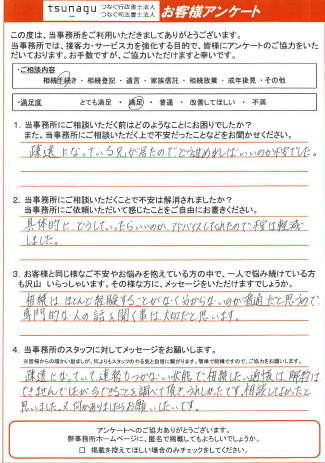 tsunagu つなぐ行政書士法人
つなぐ司法書士法人 お客様アンケート
この度は、当事務所をご利用いただきましてありがとうございます。
当事務所では、接客力・サービス力を強化する目的で、皆様にアンケートのご協力をいた
だいております。お手数ですが、ご協力いただけますと幸いです。
・ご相談内容
相続手続き・相続登記・遺言・家族信託・相続放棄・成年後見・その他
・満足度 とても満足・満足・普通・改善してほしい・不満
1. 当事務所にご相談いただく前はどのようなことにお困りでしたか?
また、当事務所にご相談いただく上で不安だったことなどをお聞かせください。
疎遠になっている兄が居たのでどう進めればいいのか不安でした。
2. 当事務所にご相談いただくことで不安は解消されましたか?
当事務所にご依頼いただいて感じたことをご自由にお書きください。
具体的にどうしていったらいいのか、アドバイスしてくれたので不安は軽減
しました。
3. お客様と同じ様なご不安やお悩みを抱えている方の中で、一人で悩み続けている方
も沢山いらっしゃいます。その様な方に、メッセージをいただけますでしょうか。
相続はほとんど経験することがなく分からないのが普通だと思うので、
専門的な人の話を聞く事は大切だと思います。
4. 当事務所のスタッフに対してメッセージをお願いします。
※皆様からの暖かい励ましが、何よりもスタッフのやる気と自信に繋がります。簡単で結構ですので、ご協力をお願いします。
疎遠になっていて連絡もつかない状態で相談したい
できませんでしたができることを調べて頂きうれしかったです。相談してよかったと
思いました。又何かありましたらお願いしたいです。
アンケートへのご協力ありがとうございます。
弊事務所ホームページに、匿名で掲載してもよろしいでしょうか。
□ 掲載を控えてほしい場合のみチェックをしてください。